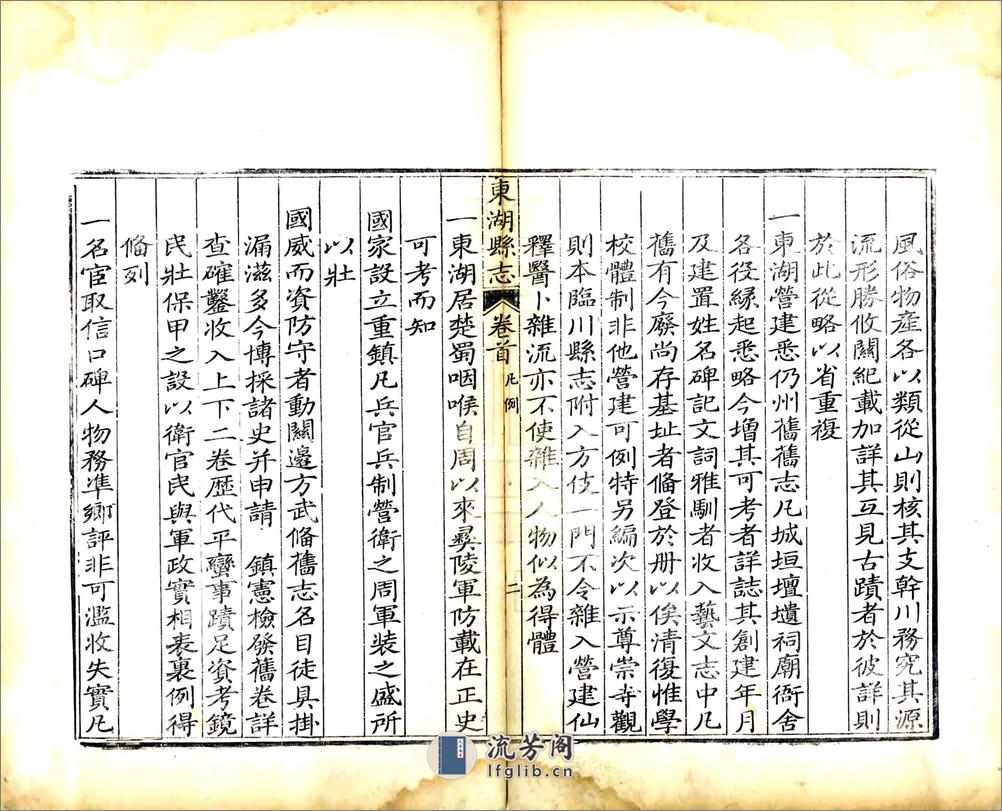 風俗物產各以類從山則核其支幹川務究其源
流形勝攸關紀載加詳其互見古蹟者於彼詳則
於此從略以省重複
一東湖營建悉仍州舊舊志凡城垣壇壝祠廟衙舍
各役緣起悉略今增其可考者詳誌其創建年月
及建置姓名碑記文詞雅馴者收入藝文志中凡
舊有今廢尚存基址者俻登於册以俟清復惟學
校體制非他營建可例特另編次以示尊崇寺觀
則本臨川縣志附入方伎一門不令雜入營建仙
釋醫卜雜流亦不使雜入人物似為得體
東湖縣志 卷首 凡例 二
一東湖居楚蜀咽喉自周以來彛陵軍防載在正史
可考而知
國家設立重鎮凡兵官兵制營衛之周軍装之盛所
以壯
國威而資防守者動關邊方武俻舊志名目徒具掛
漏滋多今博採諸史并申請 鎮憲檢發舊卷詳
查確鑿收入上下二卷歷代平蠻事蹟足資考鏡
民壯保甲之設以衛官民與軍政實相表裏例得
俻列
一名宦取信口碑人物務準鄉評非可濫收失實凡
流芳阁
lfglib.cn